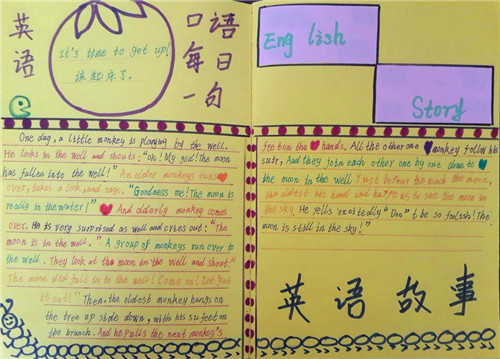 英语
It's time to get up!
该起床了.
口语
每日
一句
English
Story
One day, a little monkey is playing by the well.
He looks in the well and shouts: "Oh! My god! The moon
has fallen into the well!" An older monkeys runs
over, takes a look, and says, "Goodness me! The moon is
really in the water!" And olderly monkey comes
over. He is very surprised as well and cries out: "The
moon is in the well." A group of monkeys run over to
the well. They look at the moon in the well and shout:
"The moon did fall in to the well! Come on! Let get
it out!" Then, the oldest monkey hangs on
the tree up side down, with his feet on
the branch. And he pulls the next monkey's
feet on the hands. All the other monkey follow his
suit, And they join each other one by one down to
the moon in the well Just before they the moon,
the oldest his head and happens to see the moon in
the sky He yells excitedly "Don't be so foolish! The
moon is still in the sky!"
英语故事